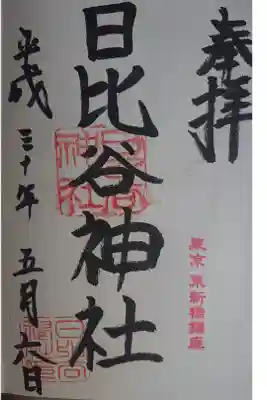 奉拝
東京東新橋鎮座
日比谷神社
平成三十年五月六日